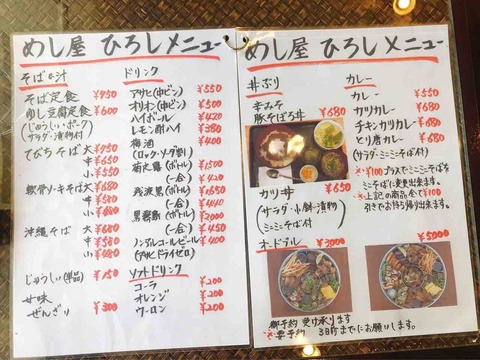 めし屋 ひろしメニュー
そば&汁
そば定食 ¥950
ゆし豆腐定食 ¥600
(じゅうしぃ・ポーク)
サラダ・漬物付
てびちそば 大 ¥950
中 ¥650
小 ¥550
軟骨ソーキそば 大 ¥680
中 ¥580
小
沖縄そば 大 ¥680
中 ¥580
小
じゅうしぃ(単品) ¥150
甘味
ぜんざい ¥300
ドリンク
アサヒ(中ビン) ¥550
オリオン(中ビン) ¥500
ハイボール ¥420
レモン酎ハイ ¥380
梅酒 ¥400
(ロック・ソーダ割)
菊之露(ボトル) ¥1500
(一合) ¥420
残波黒(ボトル) ¥1650
(一合) ¥440
(ボトル) 2000
(一合) ¥450
ノンアルコールビール ¥400
(アサヒドライゼロ)
ソフトドリンク
コーラ ¥200
オレンジ ¥200
ウーロン ¥200
めし屋 ひろしメニュー
丼ぶり
辛みそ
豚そぼろ丼 ¥680
カツ丼 ¥650
(サラダ・小鉢・漬物)
ミニそば付
オードブル ¥3000 ¥5000
カレー
カレー ¥550
カツカレー ¥680
チキンカツカレー ¥680
とり唐カレー ¥680
(サラダ・ミニミニそば付)
※¥100プラスでミニミニそばが
ミニそばに変更出来ます。
※上記の商品全て¥100
引きでお持ち帰り出来ます。
御予約 受け承ります
※要予約 3日前までにお願いします。